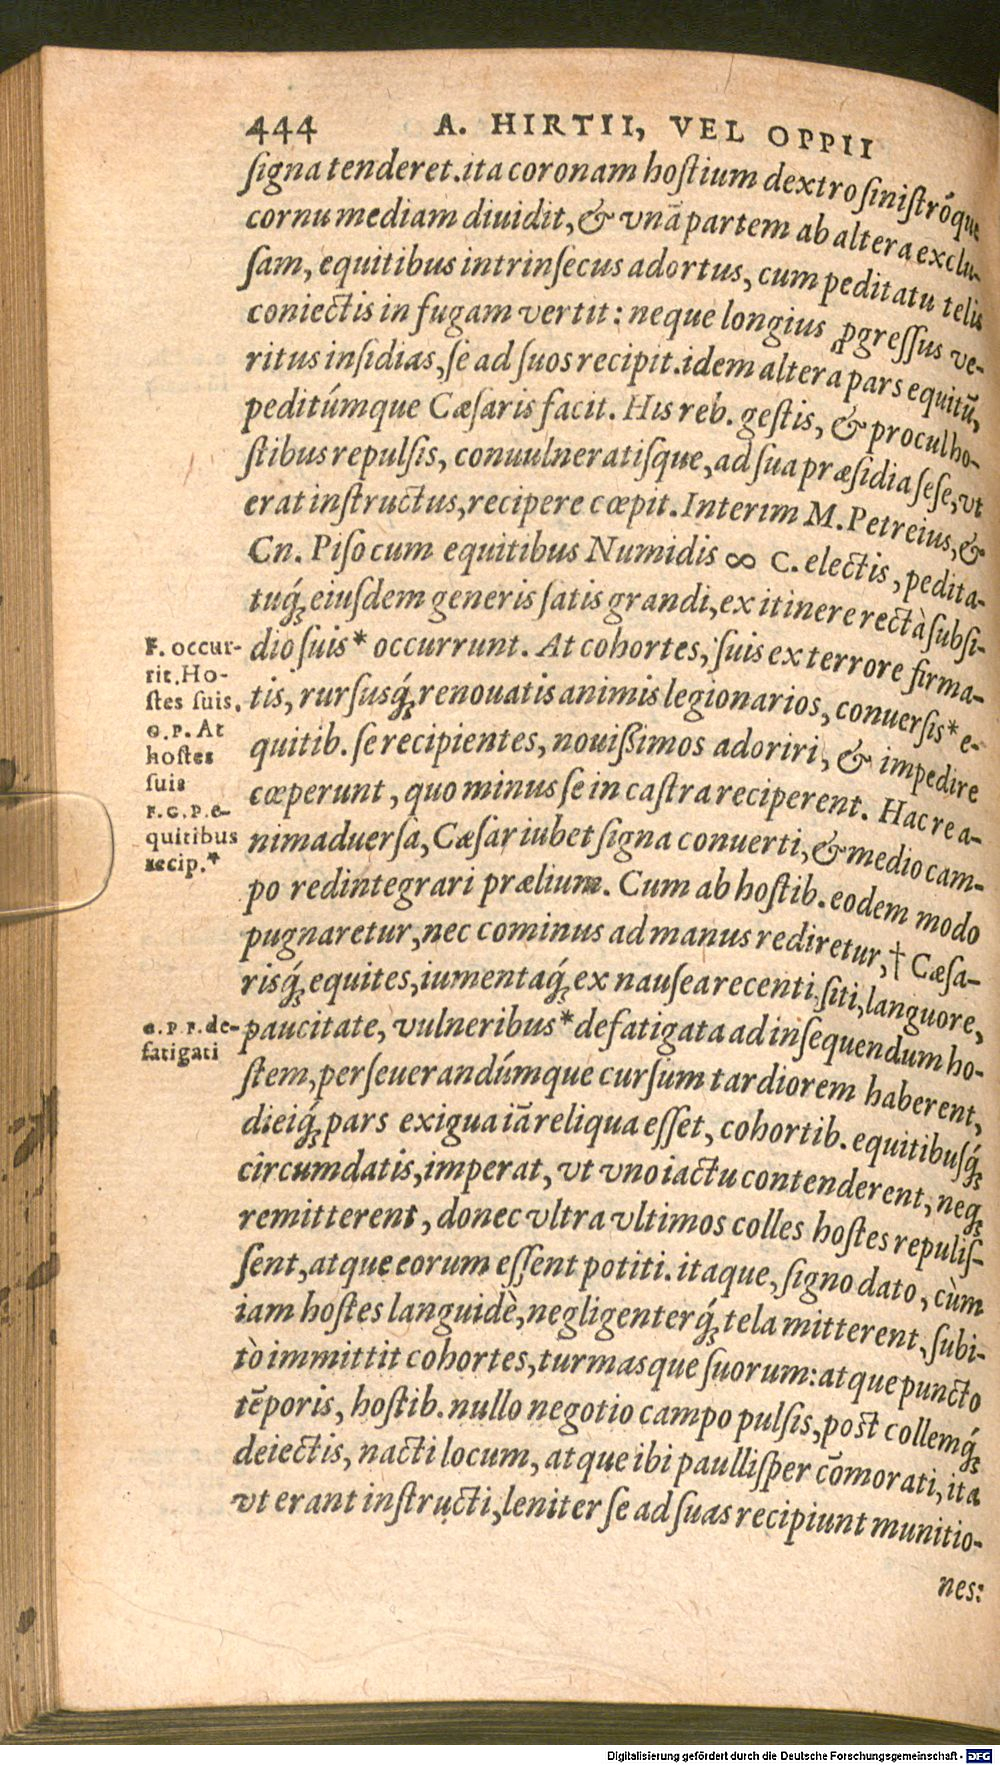 444 A. HIRTII, VEL OPPII
ſigna tenderet. ita coronam hoſtium dextro ſiniſtróque
cornu mediam diuidit, & vnā partem ab altera exclu-
ſam, equitibus intrinſecus adortus, cum peditatu telis
coniectis in fugam vertit: neque longius ꝓgreſſus ve-
ritus inſidias, ſe ad ſuos recipit. idem altera pars equitū,
peditúmque Cæſaris facit. His reb. geſtis, & procul ho-
ſtibus repulſis, conuulneratiſque, ad ſua præſidia ſeſe, vt
erat inſtructus, recipere cœpit. Interim M. Petreius, &
Cn. Piſo cum equitibus Numidis ∞ C. electis, pedita-
tuq́; eiuſdem generis ſatis grandi, ex itinere rectà ſubſi-
dio ſuis* occurrunt. At cohortes, ſuis ex terrore firma-
tis, rurſusq́; renouatis animis legionarios, conuerſis* e-
quitib. ſe recipientes, nouißimos adoriri, & impedire
cœperunt, quo minus ſe in caſtra reciperent. Hac re a-
nimaduerſa, Cæſar iubet ſigna conuerti, & medio cam-
po redintegrari prælium. Cum ab hoſtib. eodem modo
pugnaretur, nec cominus ad manus rediretur, † Cæſa-
risq́; equites, iumentaq́; ex nauſea recenti, ſiti, languore,
paucitate, vulneribus* defatigata ad inſequendum ho-
ſtem, perſeuerandúmque curſum tardiorem haberent,
dieiq́; pars exigua iā reliqua eſſet, cohortib. equitibuſq́;
circumdatis, imperat, vt vno iactu contenderent, neq;
remitterent, donec vltra vltimos colles hoſtes repuliſ-
ſent, atque eorum eſſent potiti. itaque, ſigno dato, cùm
iam hoſtes languidè, negligenterq́; tela mitterent, ſubi-
tò immittit cohortes, turmasque ſuorum: atque puncto
tēporis, hoſtib. nullo negotio campo pulſis, poſt collemq́;
deiectis, nacti locum, atque ibi paulliſper cōmorati, ita
vt erant inſtructi, leniter ſe ad ſuas recipiunt munitio-
nes:
F. occur-
rit. Ho-
ſtes ſuis.
O. P. At
hoſtes
ſuis
F. G. P. e-
quitibus
recip.*
O. P F. de-
fatigati
Digitalisierung gefördert durch die Deutsche Forschungsgemeinschaft - DFG